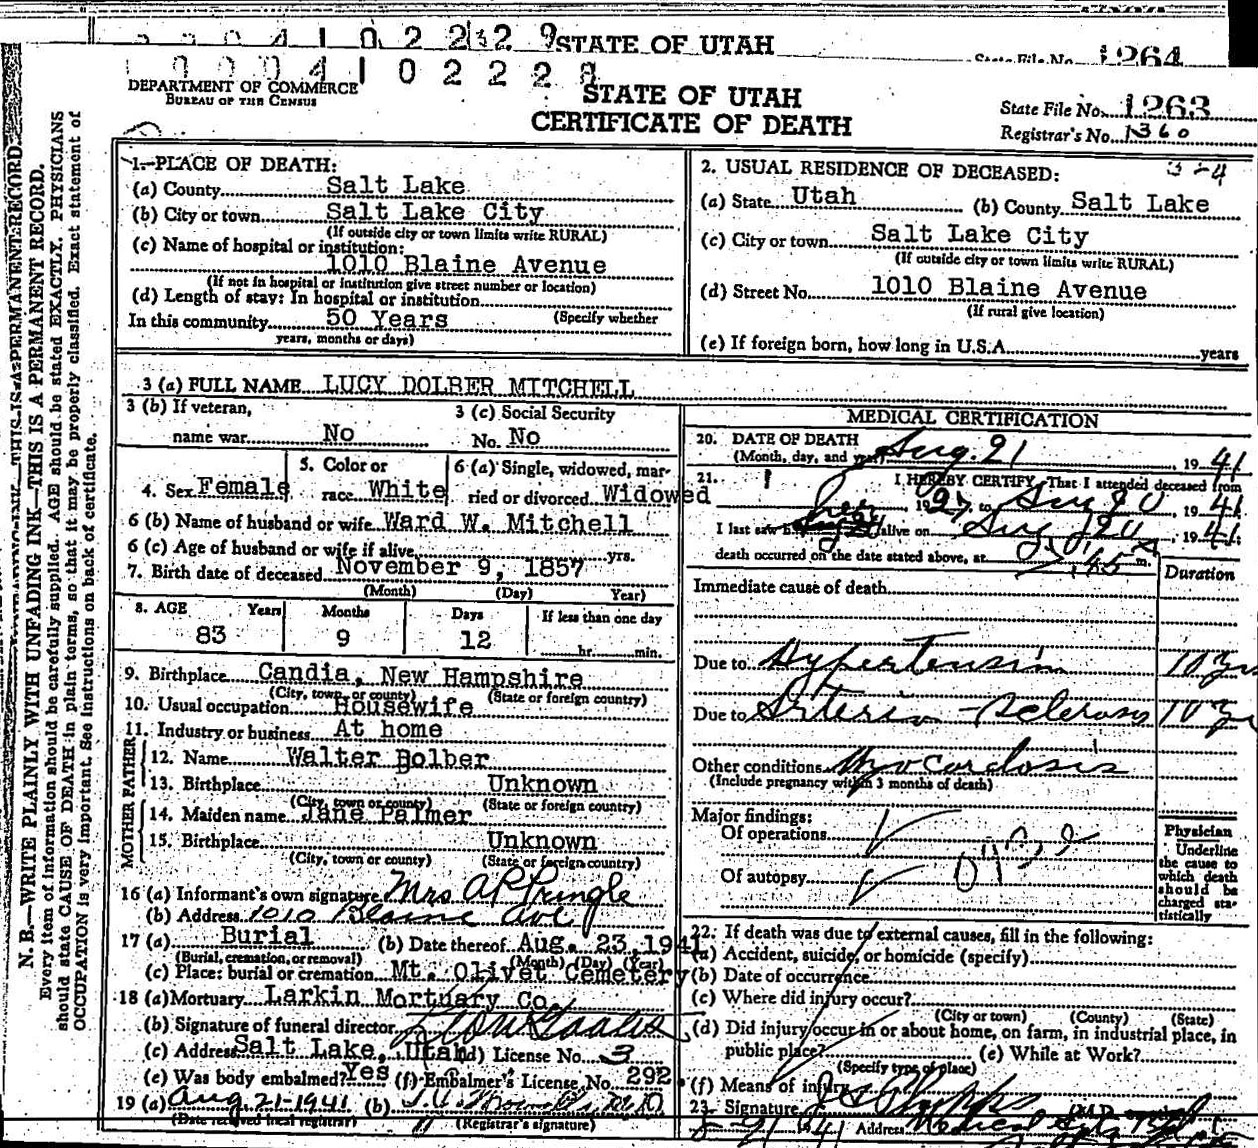 STATE OF UTAH
State File No. 1264
0 0 0 4 1 0 2 2 2 8
DEPARTMENT OF COMMERCE
BUREAU OF THE CENSUS
STATE OF UTAH
CERTIFICATE OF DEATH
State File No. 1263
Registrar's No. 1360
N. B.—WRITE PLAINLY WITH UNFADING INK—THIS IS A PERMANENT RECORD.
Every item of information should be carefully supplied. AGE should be stated EXACTLY. PHYSICIANS
should state CAUSE OF DEATH in plain terms, so that it may be properly classified. Exact statement of
OCCUPATION is very important. See instructions on back of certificate.
1. PLACE OF DEATH:
(a) County Salt Lake
(b) City or town Salt Lake City
(If outside city or town limits write RURAL)
(c) Name of hospital or institution:
1010 Blaine Avenue
(If not in hospital or institution give street number or location)
(d) Length of stay: In hospital or institution
In this community 50 Years (Specify whether
years, months or days)
2. USUAL RESIDENCE OF DECEASED: 3-4
(a) State Utah (b) County Salt Lake
(c) City or town Salt Lake City
(If outside city or town limits write RURAL)
(d) Street No. 1010 Blaine Avenue
(If rural give location)
(e) If foreign born, how long in U.S.A. years
3 (a) FULL NAME LUCY DOLBER MITCHELL
3 (b) If veteran, 3 (c) Social Security
name war No No. No
4. Sex Female 5. Color or race White 6 (a) Single, widowed, married or divorced Widowed
6 (b) Name of husband or wife Ward W. Mitchell
6 (c) Age of husband or wife if alive yrs.
7. Birth date of deceased November 9, 1857
(Month) (Day) Year)
8. AGE Years Months Days If less than one day
83 9 12 hr. min.
9. Birthplace Candia, New Hampshire
(City, town, or county) (State or foreign country)
10. Usual occupation Housewife
11. Industry or business At home
FATHER
12. Name Walter Dolber
13. Birthplace Unknown
(City, town or county) (State or foreign country)
MOTHER
14. Maiden name Jane Palmer
15. Birthplace Unknown
(City, town or county) (State or foreign country)
16 (a) Informant's own signature Mrs A P Pringle
(b) Address 1010 Blaine Ave
17 (a) Burial (b) Date thereof Aug. 23, 1941
(Burial, cremation, or removal) (Month) (Day) (Year)
(c) Place: burial or cremation Mt. Olivet Cemetery
18 (a) Mortuary Larkin Mortuary Co.
(b) Signature of funeral director
(c) Address Salt Lake, Utah (d) License No. 3
(e) Was body embalmed? Yes (f) Embalmer's License No. 292
19 (a) Aug. 21-1941 (b)
(Date received local registrar) (Registrar's signature)
MEDICAL CERTIFICATION
20. DATE OF DEATH
(Month, day, and year) Aug. 21, 1941
21. I HEREBY CERTIFY, That I attended deceased from
1927, to Aug 20, 1941
I last saw her alive on Aug 20, 1941;
death occurred on the date stated above, at 45 m.
Immediate cause of death Duration
Due to Hypertension 10 yrs
Due to Arterio-Sclerosis 10 yr
Other conditions Myocardosis
(Include pregnancy within 3 months of death)
Major findings:
Of operations
Of autopsy
Physician
Underline
the cause to
which death
should be
charged sta-
tistically
22. If death was due to external causes, fill in the following:
(a) Accident, suicide, or homicide (specify)
(b) Date of occurrence
(c) Where did injury occur?
(City or town) (County) (State)
(d) Did injury occur in or about home, on farm, in industrial place, in
public place? (e) While at Work?
(Specify type of place)
(f) Means of injury
23. Signature
8-21-41 Address Medical